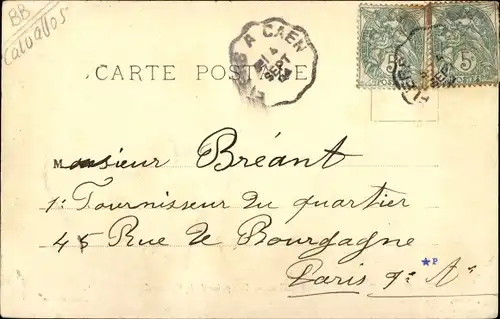 BB
Calvados
A CAEN
4
SEPT
5
5
CARTE POSTALE
Monsieur Bréant
1: Fournisseur du quartier
45 Rue de Bourgogne
Paris 7e Ar
★P